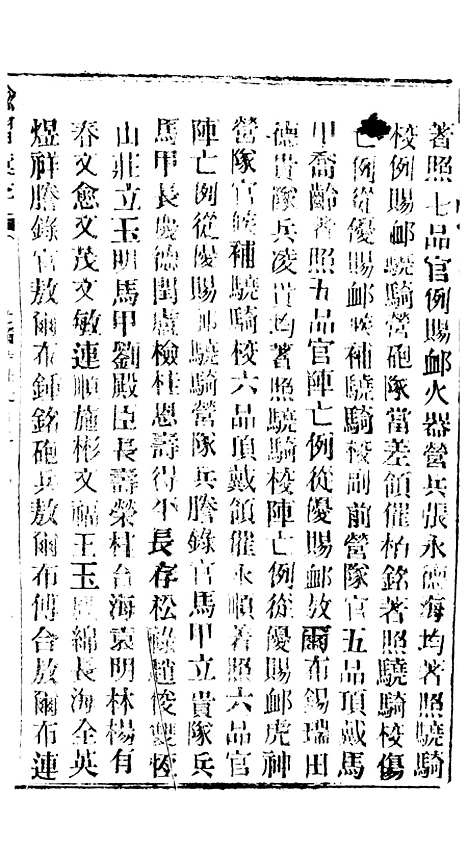 著照七品官例賜卹火器營兵張永德海均著照驍騎
校例賜卹驍騎營砲隊當差領催柏銘著照驍騎校傷
亡例從優賜卹候補驍騎校副前營隊官五品頂戴馬
甲喬齡著照五品官陣亡例從優賜卹敖爾布錫瑞田
德貴隊兵凌貴均著照驍騎校陣亡例從優賜卹虎神
營隊官候補驍騎校六品頂戴領催永順著照六品官
陣亡例從優賜卹驍騎營隊兵謄錄官馬甲立貴隊兵
馬甲長慶德閏盧檢桂恩壽得仝長存松祿趙俊雙恆
山莊立玉明馬甲劉殿臣長壽榮桂台海袁明林楊有
春文愈文茂文敏連順施彬文福王玉綿長海全英
煜祥謄錄官敖爾布鍾銘砲兵敖爾布傅合敖爾布連